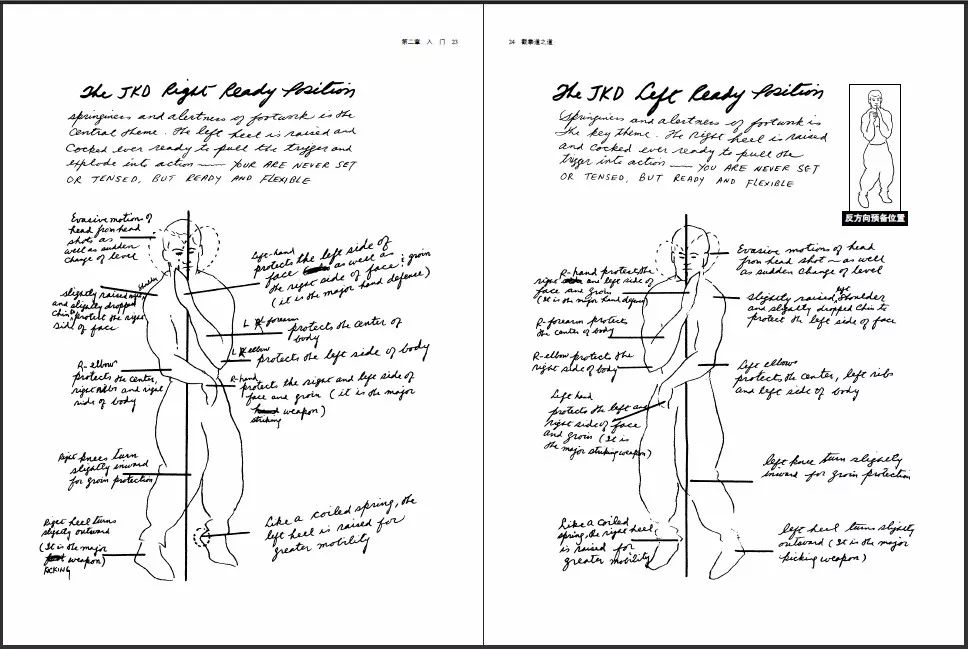 第二章 入 门 23
The JKD Right Ready Position
springiness and alertness of footwork is the
central theme. The left heel is raised and
cocked ever ready to pull the trigger and
explode into action — YOUR ARE NEVER SET
OR TENSED, BUT READY AND FLEXIBLE
Evasive motion of
head from head
shots as
well as sudden
change of level
slightly raised
shoulder
and slightly dropped
chin to protect the right
side of face
R-elbow
protects the center,
right ribs and right
side of body
Right knees turn
slightly inward
for groin protection
Right heel turns
slightly outward
(It is the major
weapon)
KICKING
Left-hand
protects the left side of
face as well as groin
the right side of face
(it is the major hand defense)
L forearm
protects the center of
body
L elbow
protects the left side of body
R-hand
protects the right and left side of
face and groin (it is the major
weapon)
striking
Like a coiled spring, the
left heel is raised for
greater mobility
24 截拳道之道
The JKD Left Ready Position
Springiness and alertness of footwork is
the key theme. The right heel is raised
and cocked ever ready to pull the
trigger into action — YOU ARE NEVER SET
OR TENSED, BUT READY AND FLEXIBLE
反方向预备位置
R-hand protect the
right and left side of
face and groin
(It is the major hand defense)
R-forearm protects
the center of body
R-elbow protect the
right side of body
Left hand
protects the left and
right side of face
and groin (It is
the major striking weapon)
Like a coiled
spring, the right heel
is raised for
greater mobility
Evasive motions of head
from head shot — as well
as sudden change of level
slightly raised left shoulder
and slightly dropped chin to
protect the left side of face
Left elbow
protects the center, left ribs
and left side of body
left knee turn slightly
inward for groin protection
left heel turns slightly
outward (It is the major
kicking weapon)